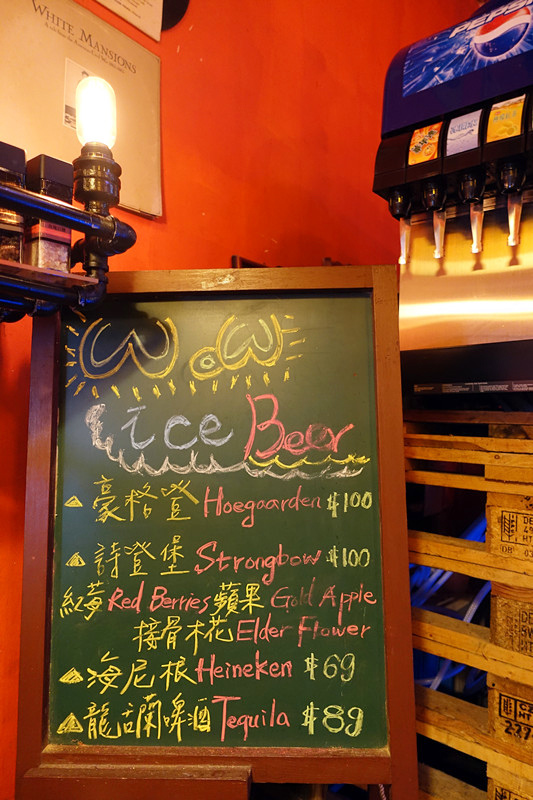 WHITE MANSIONS
PEPSI
WoW
ice Beer
豪格登 Hoegaarden $100
詩登堡 Strongbow $100
紅莓 Red Berries 蘋果 Gold Apple
接骨木花 Elder Flower
海尼根 Heineken $69
龍舌蘭啤酒 Tequila $89